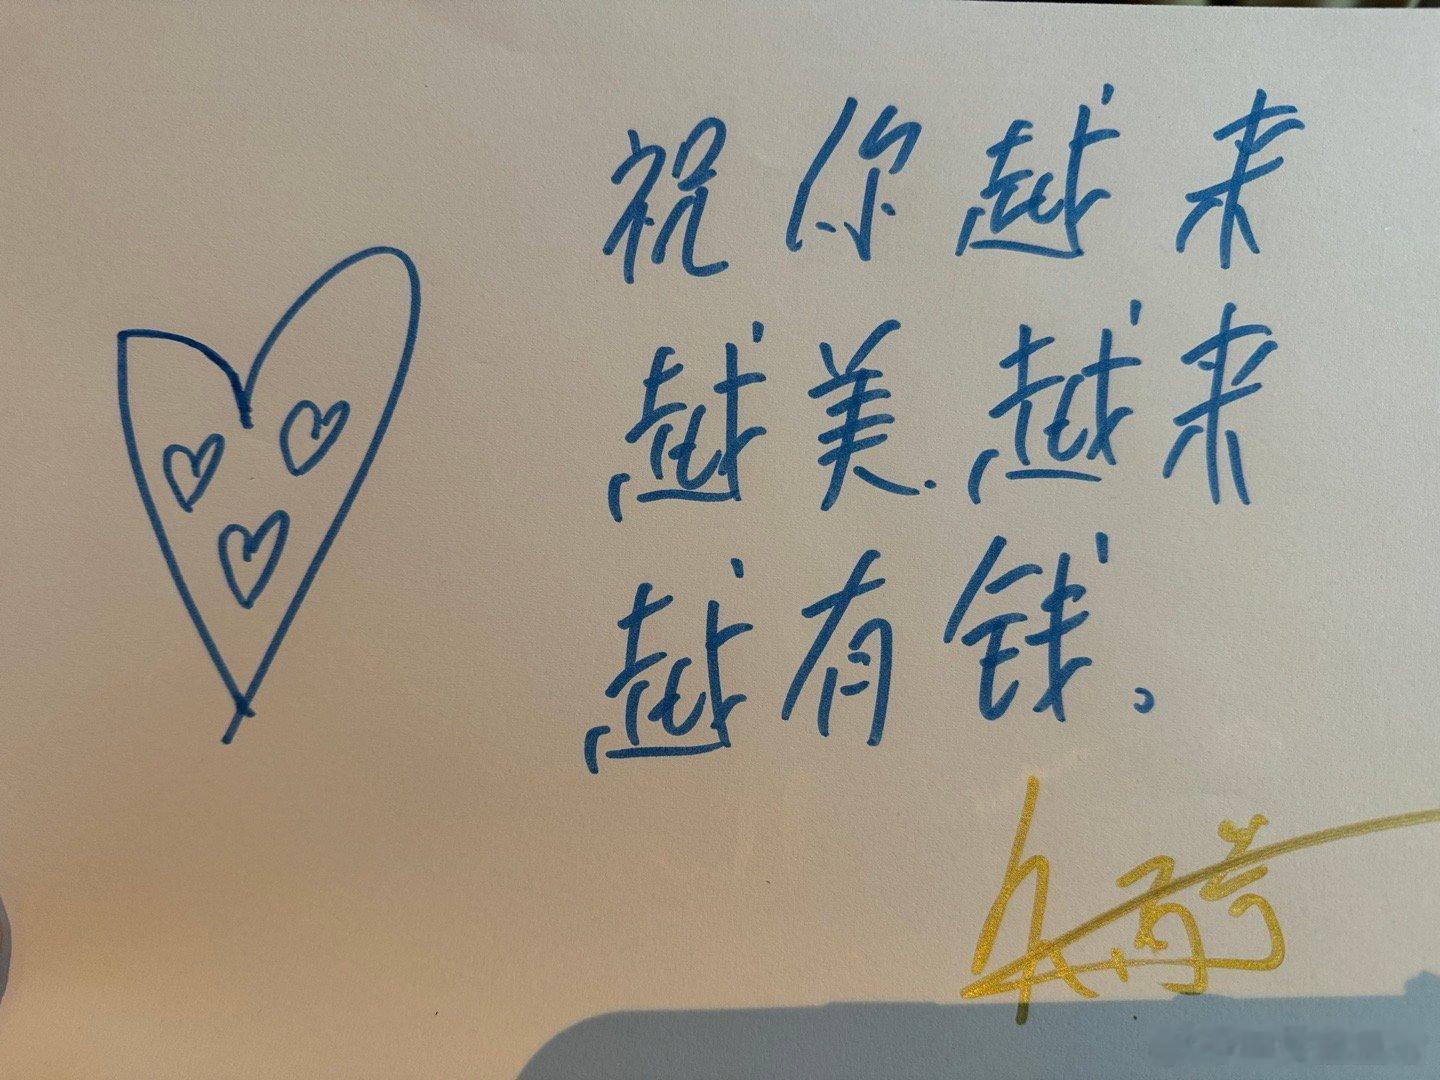 祝你越来
越美.越来
越有钱。